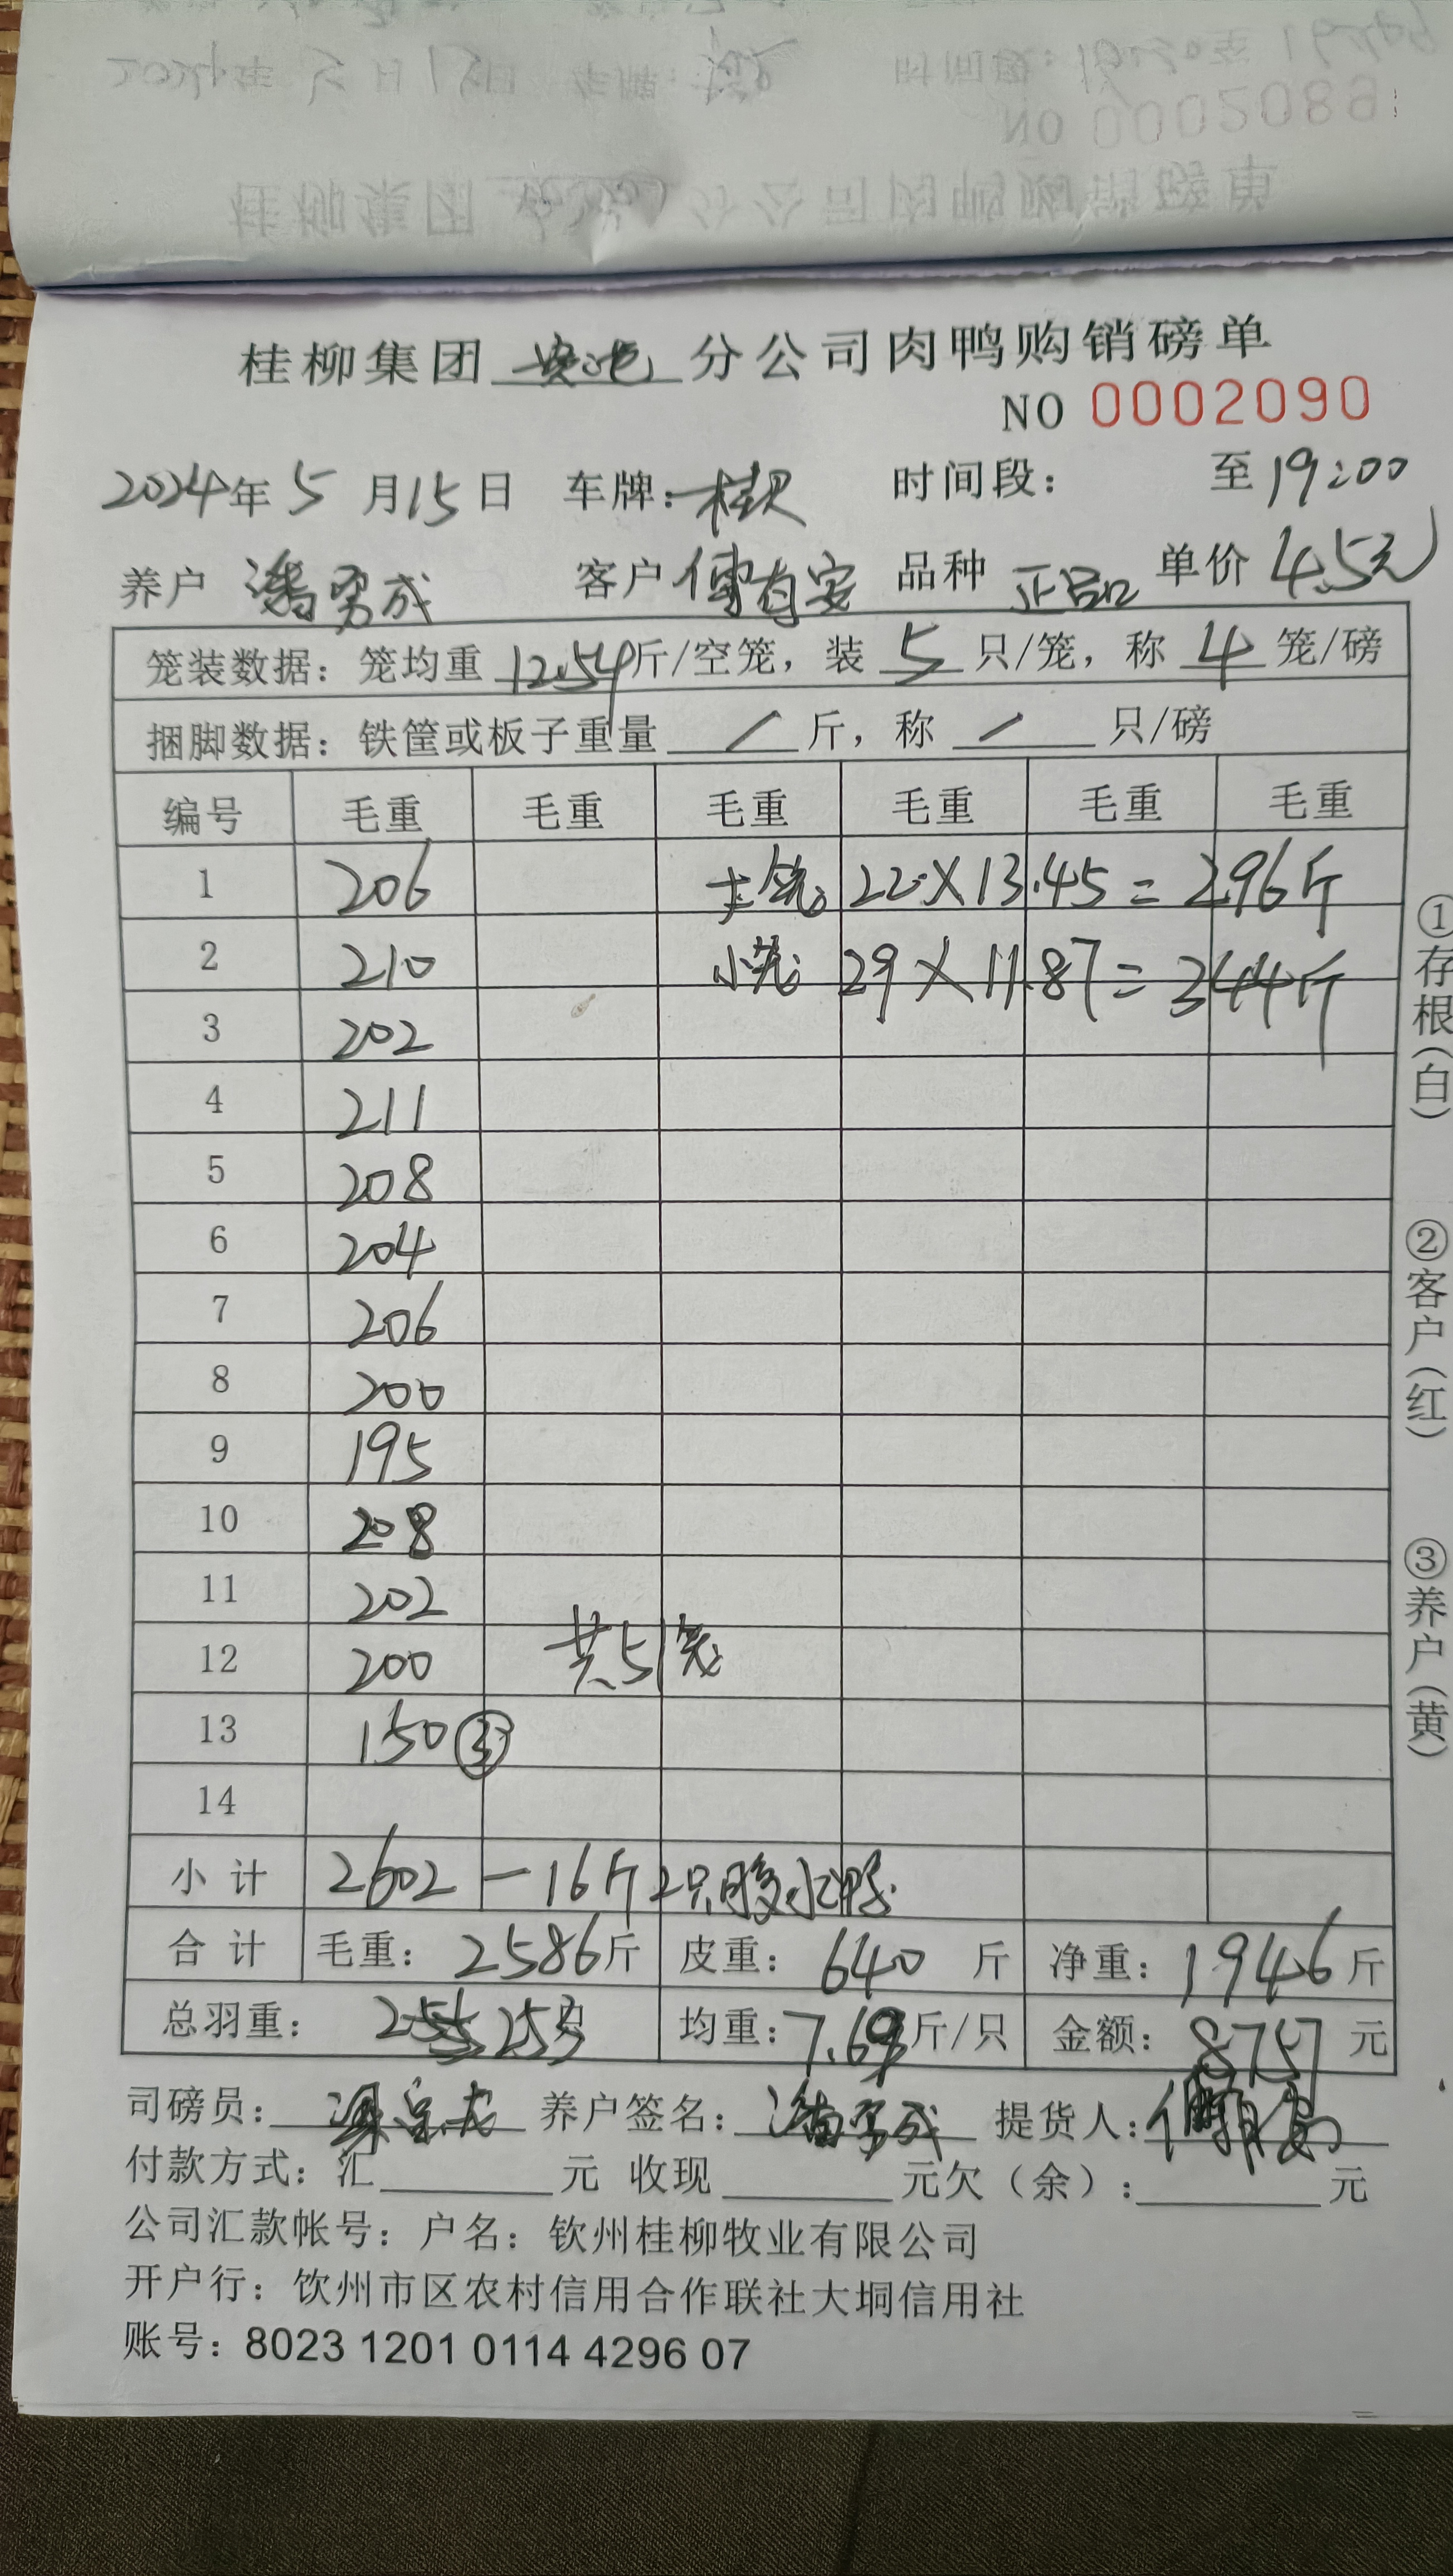 NO 0002089
桂柳集团 分公司肉鸭购销磅单
NO 0002090
2024年5月15日 车牌: 时间段: 至19:00
养户 潘男成 客户 傅有安 品种 正品 单价 4.5元
笼装数据: 笼均重 12.54斤/空笼, 装 5 只/笼, 称 4 笼/磅
捆脚数据: 铁筐或板子重量 / 斤, 称 / 只/磅
编号 毛重 毛重 毛重 毛重 毛重 毛重
1 206 大笼 22×13.45=296斤
2 210 小笼 29×11.87=344斤
3 202
4 211
5 208
6 204
7 206
8 200
9 195
10 208
11 202
12 200 共51笼
13 150 ③
14
小计 2602 -16斤 2只 水鸭
合计 毛重: 2586斤 皮重: 640 斤 净重: 1946斤
总羽重: 253 均重: 7.69斤/只 金额: 8757元
司磅员: 养户签名: 潘男成 提货人:
付款方式: 汇 元 收现 元欠(余): 元
公司汇款帐号: 户名: 钦州桂柳牧业有限公司
开户行: 饮州市区农村信用合作联社大垌信用社
账号: 8023 1201 0114 4296 07
①存根(白)
②客户(红)
③养户(黄)